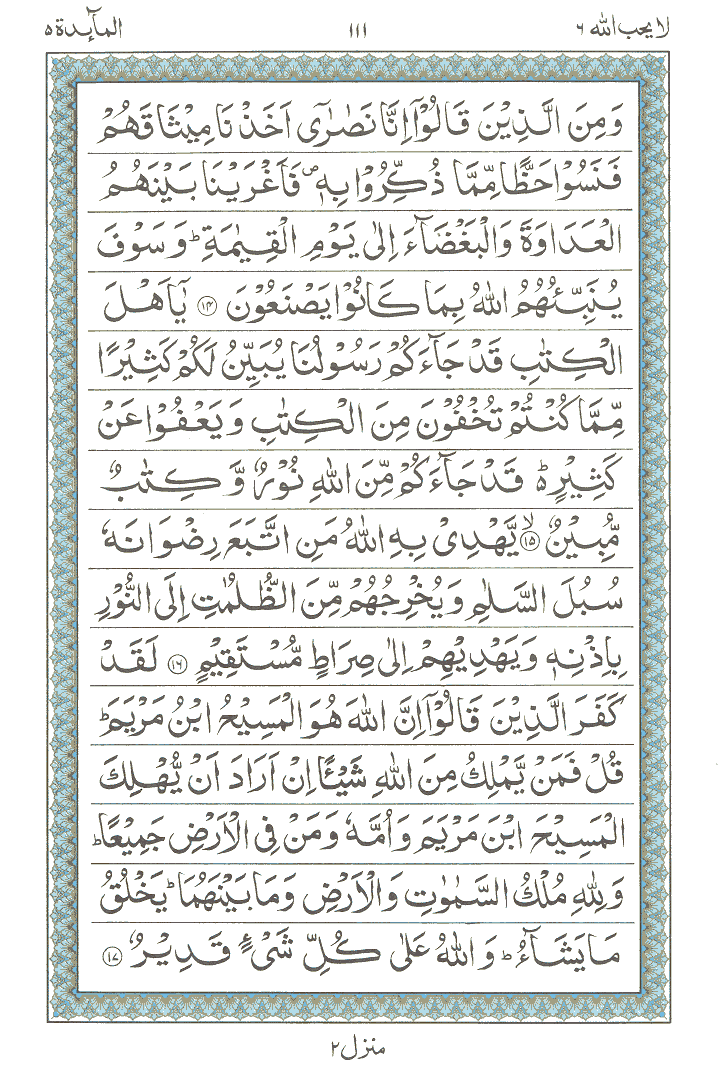 لا يحب الله ٦ ١١١ المآئدة ٥
وَمِنَ الَّذِيْنَ قَالُوْۤا اِنَّا نَصٰرٰۤى اَخَذْنَا مِيْثَاقَهُمْ
فَنَسُوْا حَظًّا مِّمَّا ذُكِّرُوْا بِهٖ ۪ فَاَغْرَيْنَا بَيْنَهُمُ
الْعَدَاوَةَ وَالْبَغْضَآءَ اِلٰى يَوْمِ الْقِيٰمَةِ ؕ وَسَوْفَ
يُنَبِّئُهُمُ اللّٰهُ بِمَا كَانُوْا يَصْنَعُوْنَ ﴿١٤﴾ يٰۤاَهْلَ
الْكِتٰبِ قَدْ جَآءَكُمْ رَسُوْلُنَا يُبَيِّنُ لَكُمْ كَثِيْرًا
مِّمَّا كُنْتُمْ تُخْفُوْنَ مِنَ الْكِتٰبِ وَيَعْفُوْا عَنْ
كَثِيْرٍ ؕ قَدْ جَآءَكُمْ مِّنَ اللّٰهِ نُوْرٌ وَّكِتٰبٌ
مُّبِيْنٌ ۙ﴿١٥﴾ يَّهْدِىْ بِهِ اللّٰهُ مَنِ اتَّبَعَ رِضْوَانَهٗ
سُبُلَ السَّلٰمِ وَيُخْرِجُهُمْ مِّنَ الظُّلُمٰتِ اِلَى النُّوْرِ
بِاِذْنِهٖ وَيَهْدِيْهِمْ اِلٰى صِرَاطٍ مُّسْتَقِيْمٍ ﴿١٦﴾ لَقَدْ
كَفَرَ الَّذِيْنَ قَالُوْۤا اِنَّ اللّٰهَ هُوَ الْمَسِيْحُ ابْنُ مَرْيَمَ ؕ
قُلْ فَمَنْ يَّمْلِكُ مِنَ اللّٰهِ شَيْـًٔا اِنْ اَرَادَ اَنْ يُّهْلِكَ
الْمَسِيْحَ ابْنَ مَرْيَمَ وَاُمَّهٗ وَمَنْ فِى الْاَرْضِ جَمِيْعًا ؕ
وَلِلّٰهِ مُلْكُ السَّمٰوٰتِ وَالْاَرْضِ وَمَا بَيْنَهُمَا ؕ يَخْلُقُ
مَا يَشَآءُ ؕ وَاللّٰهُ عَلٰى كُلِّ شَىْءٍ قَدِيْرٌ ﴿١٧﴾
منزل ٢